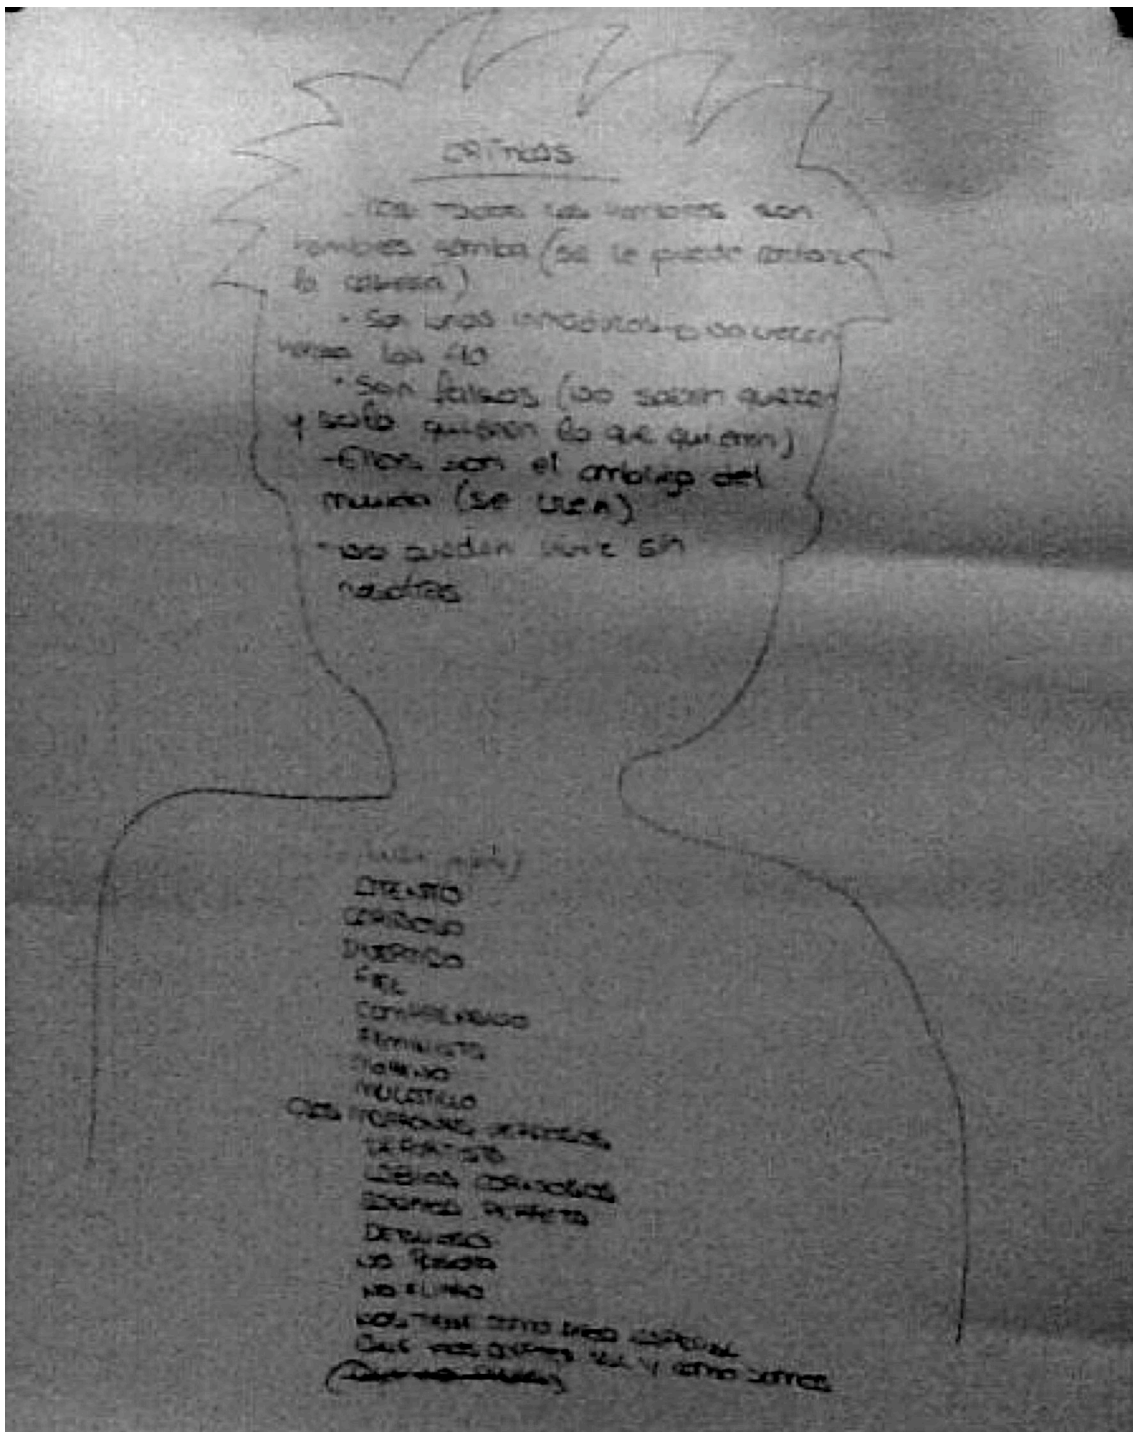 CRÍTICAS
Todos los hombres son
hombres bomba (se le puede cortar
la cabeza)
- Son unos inmaduros no crecen
hasta los 40
- Son falsos (no saben querer
y solo quieren lo que quieren)
- Ellos son el ombligo del
mundo (se creen)
- no pueden vivir sin
nosotras
ATENTO
CARIÑOSO
DIVERTIDO
FIEL
COMPRENSIVO
FEMINISTA
MORENO
MULATILLO
OJOS MARRONES
DEPORTISTA
LABIOS CARNOSOS
SONRISA PERFECTA
DETALLISTA
NO
NO
NOS TRATE COMO ALGO ESPECIAL
QUE NOS QUIERA TAL Y COMO SOMOS